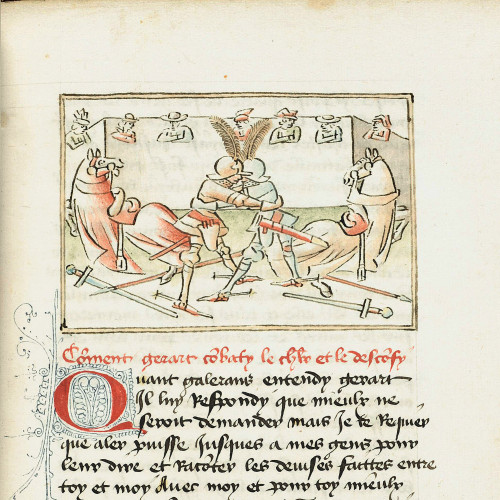 Coment gerart cobaty le chlr et le desconfy
Quant galerans entendy gerart
Il luy Respondy que mieulx ne
seroit demander mais Je te Requier
que aler puisse Jusques a mes gens pour
leur dire et Racoter les deuises faittes entre
toy et moy Auec moy et pour toy mieulx